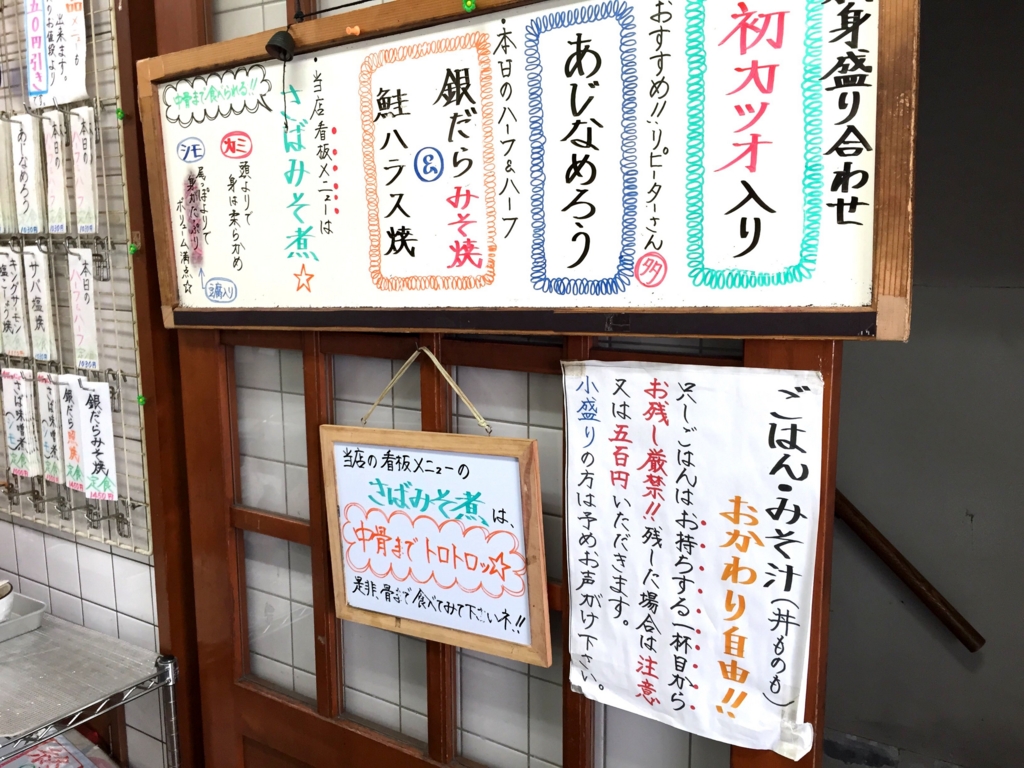 身盛り合わせ
初カツオ入り
おすすめ!!リピーターさん
多々
あじなめろう
・本日のハーフ&ハーフ
銀だらみそ焼
&
鮭ハラス焼
・当店看板メニューは
さばみそ煮☆
中骨まで食べられる!!
カミ
頭よりで
身は柔らかめ
シモ
尾っぽよりで
身がたっぷり
ボリューム満点☆
ごはん・みそ汁(丼ものも)
おかわり自由!!
只しごはんはお持ちする一杯目から
お残し厳禁!!残した場合は注意
又は五百円いただきます。
小盛りの方は予めお声がけ下さい。
当店の看板メニューの
さばみそ煮は、
中骨までトロトロッ☆
是非、骨まで食べてみて下さいネ!!
50円引き
本日の
あじなめろう
本日の
ハーフ&ハーフ
サバ塩焼
キングサーモン
塩こしょう焼
銀だらみそ焼
定食
銀だら
定食
さば味噌煮
さば味噌煮